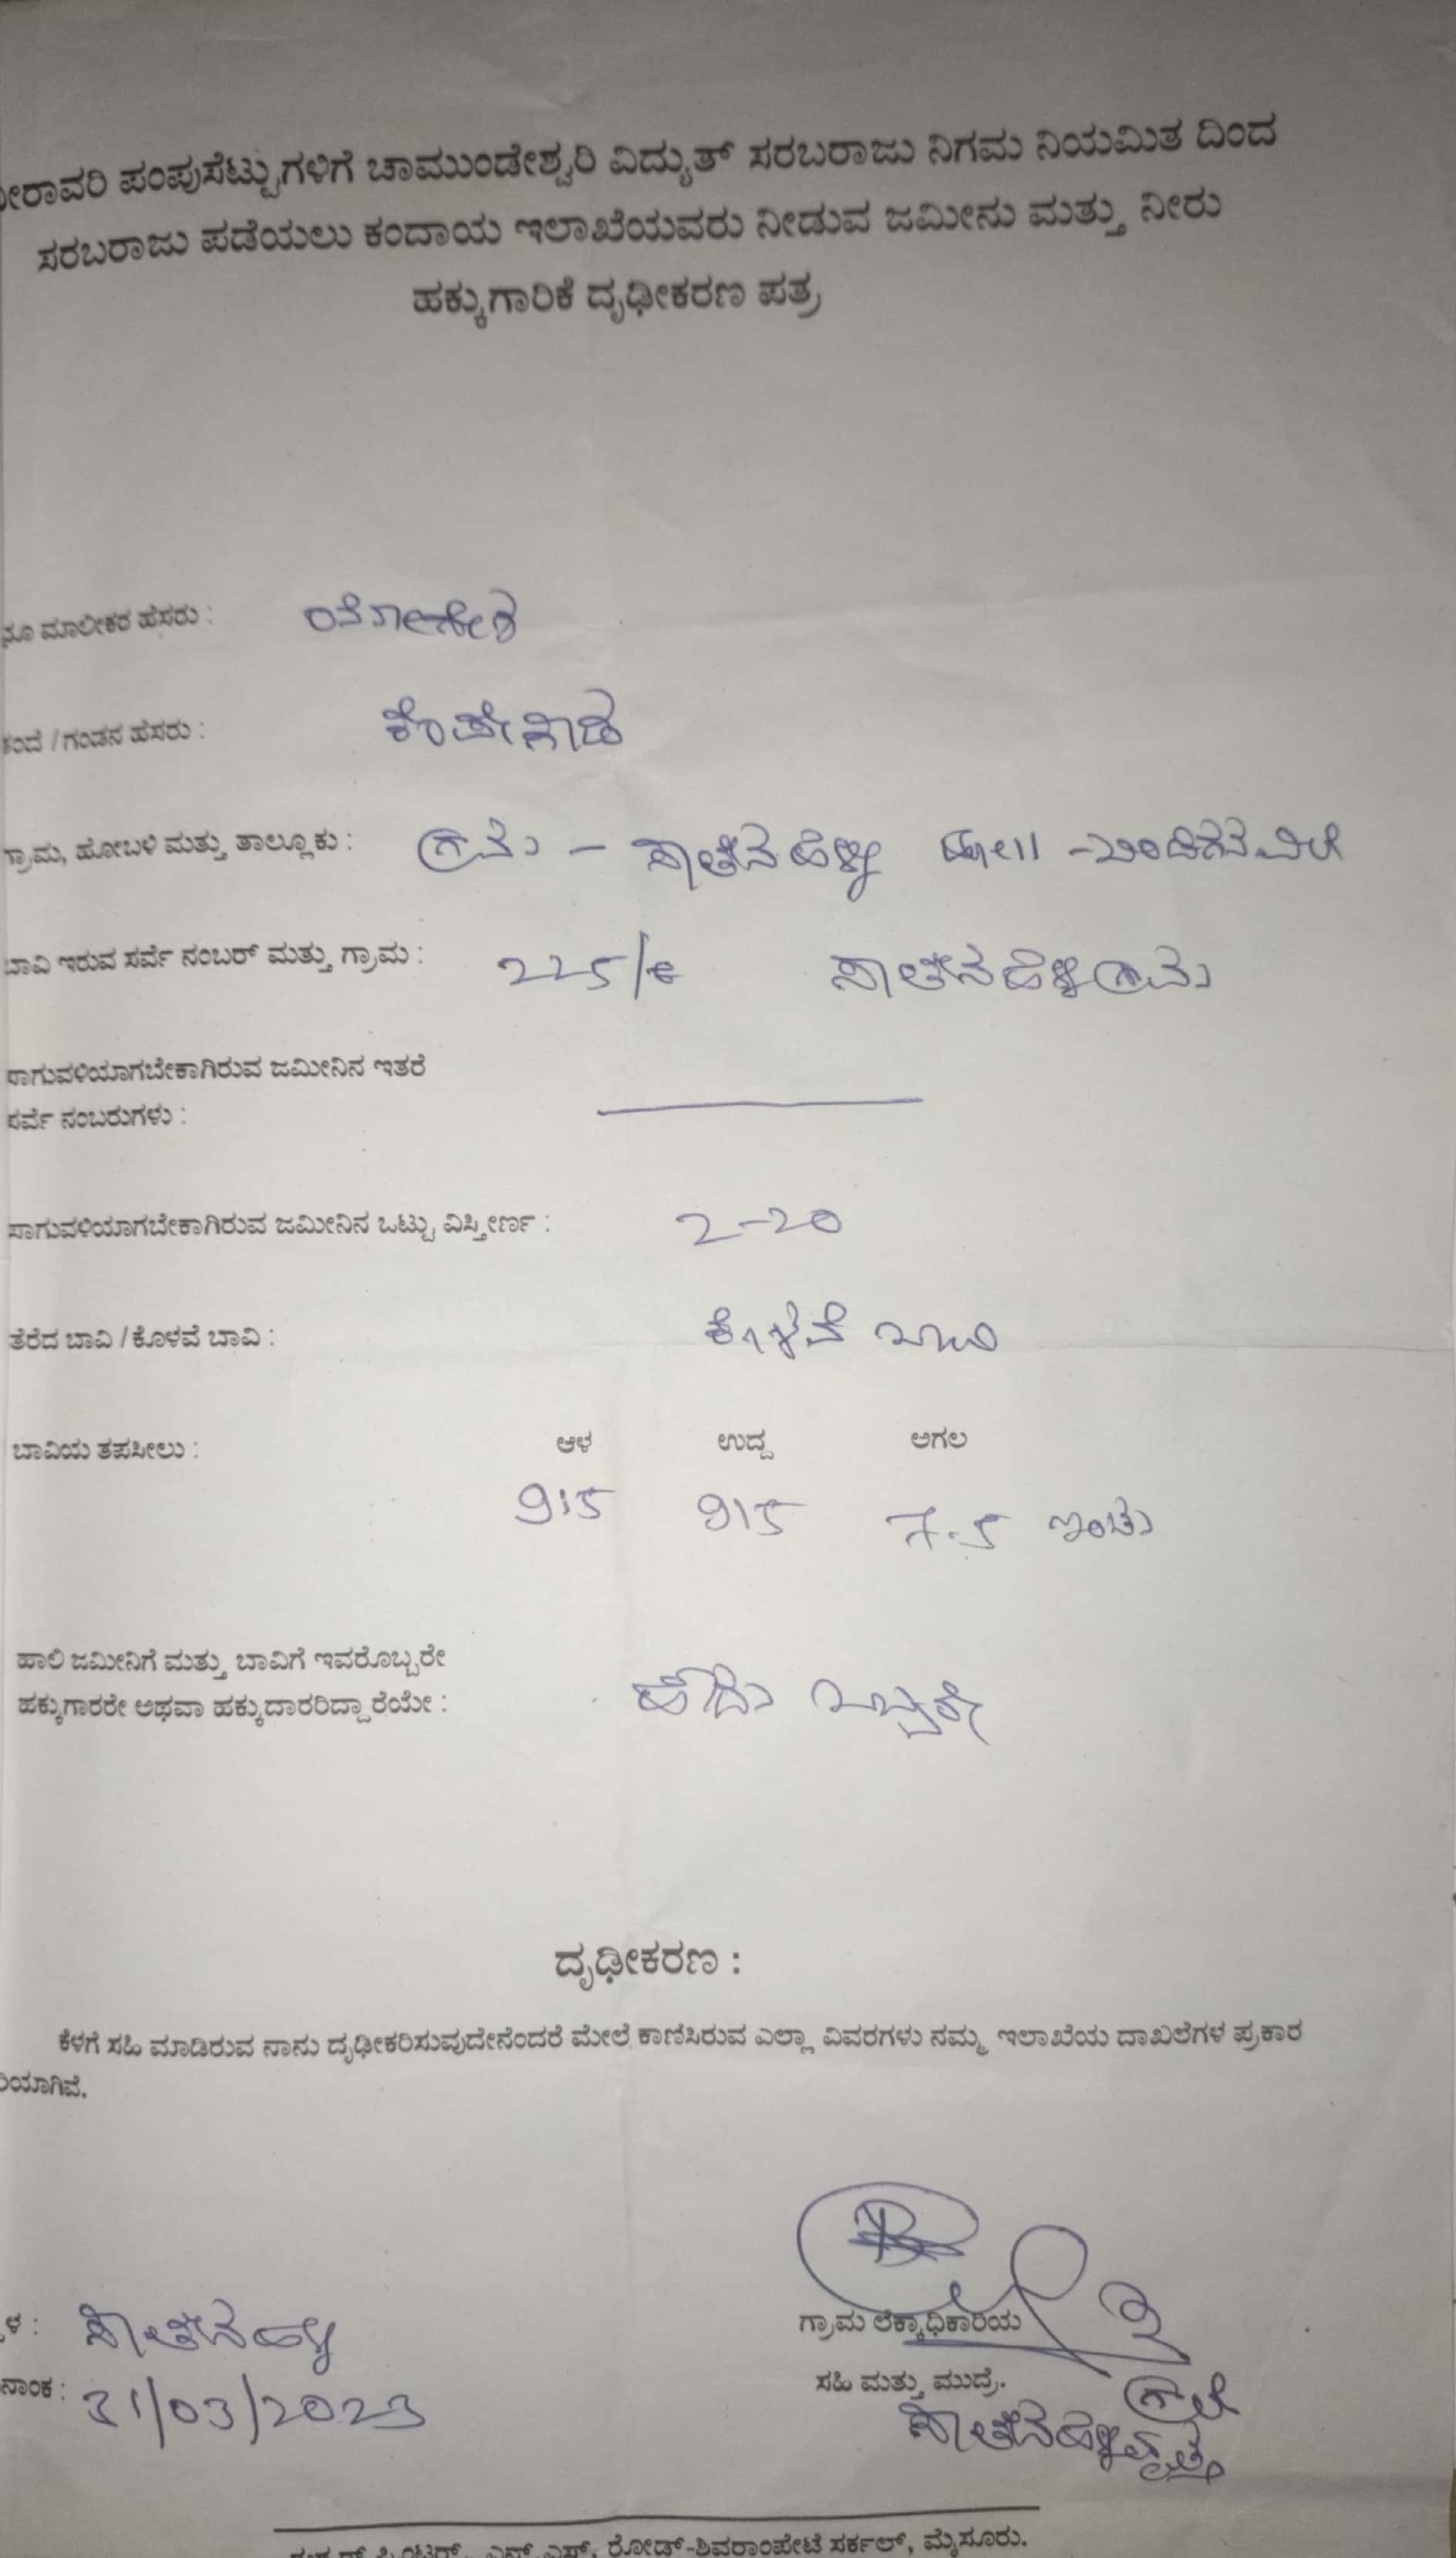 ನೀರಾವರಿ ಪಂಪುಸೆಟ್ಟುಗಳಿಗೆ ಚಾಮುಂಡೇಶ್ವರಿ ವಿದ್ಯುತ್ ಸರಬರಾಜು ನಿಗಮ ನಿಯಮಿತ ದಿಂದ
ಸರಬರಾಜು ಪಡೆಯಲು ಕಂದಾಯ ಇಲಾಖೆಯವರು ನೀಡುವ ಜಮೀನು ಮತ್ತು ನೀರು
ಹಕ್ಕುಗಾರಿಕೆ ದೃಢೀಕರಣ ಪತ್ರ
ಮಾಲೀಕರ ಹೆಸರು :
/ ಗಂಡನ ಹೆಸರು :
ಗ್ರಾಮ, ಹೋಬಳಿ ಮತ್ತು ತಾಲ್ಲೂಕು : ಗ್ರಾಮ -
ಬಾವಿ ಇರುವ ಸರ್ವೆ ನಂಬರ್ ಮತ್ತು ಗ್ರಾಮ :
ಸಾಗುವಳಿಯಾಗಬೇಕಾಗಿರುವ ಜಮೀನಿನ ಇತರೆ
ಸರ್ವೆ ನಂಬರುಗಳು :
ಸಾಗುವಳಿಯಾಗಬೇಕಾಗಿರುವ ಜಮೀನಿನ ಒಟ್ಟು ವಿಸ್ತೀರ್ಣ : 2-20
ತೆರೆದ ಬಾವಿ / ಕೊಳವೆ ಬಾವಿ : ಕೊಳವೆ ಬಾವಿ
ಬಾವಿಯ ತಪಸೀಲು : ಆಳ ಉದ್ದ ಅಗಲ
915 915 7.5 ಇಂಚು
ಹಾಲಿ ಜಮೀನಿಗೆ ಮತ್ತು ಬಾವಿಗೆ ಇವರೊಬ್ಬರೇ
ಹಕ್ಕುಗಾರರೇ ಅಥವಾ ಹಕ್ಕುದಾರರಿದ್ದಾರೆಯೇ : ಹೌದು ಒಬ್ಬರೇ
ದೃಢೀಕರಣ :
ಕೆಳಗೆ ಸಹಿ ಮಾಡಿರುವ ನಾನು ದೃಢೀಕರಿಸುವುದೇನೆಂದರೆ ಮೇಲೆ ಕಾಣಿಸಿರುವ ಎಲ್ಲಾ ವಿವರಗಳು ನಮ್ಮ ಇಲಾಖೆಯ ದಾಖಲೆಗಳ ಪ್ರಕಾರ
ರಿಯಾಗಿವೆ.
ಗ್ರಾಮ ಲೆಕ್ಕಾಧಿಕಾರಿಯ
ಸಹಿ ಮತ್ತು ಮುದ್ರೆ.
ನಾಂಕ : 31/03/2023
ರೋಡ್-ಶಿವರಾಂಪೇಟೆ ಸರ್ಕಲ್, ಮೈಸೂರು.